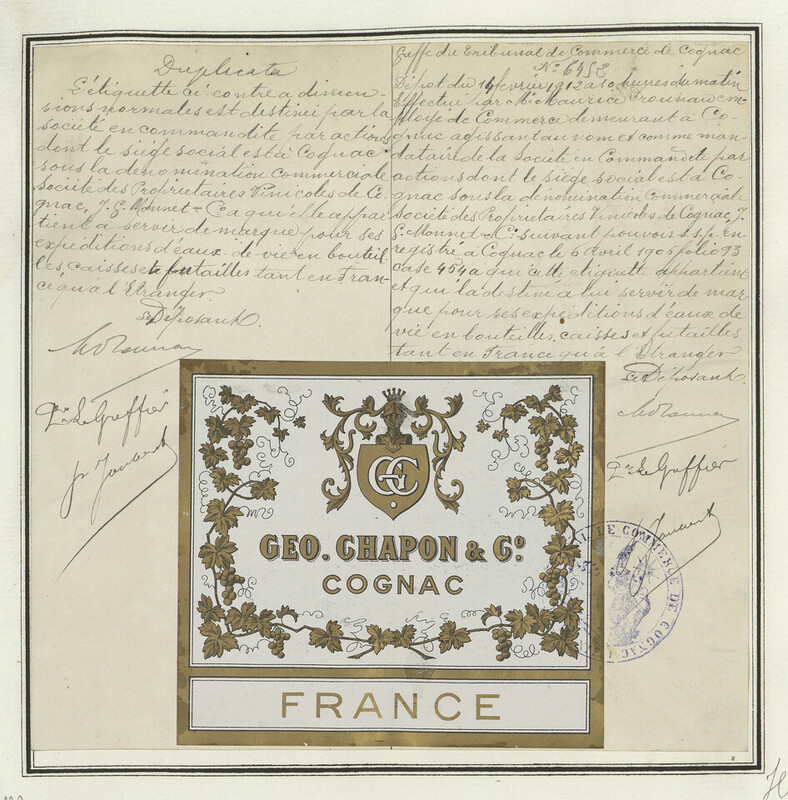 Duplicata
L'étiquette ci contre a dimen-
sions normales est destinée par la
société en commandite par actions
dont le siège social est à Cognac
sous la dénomination commerciale
Société des Propriétaires Vinicoles de Co-
gnac, J. G. Monnet & Ca qui elle appar-
tient à servir de marque pour ses
expéditions d'eaux de vie en bouteil-
les, caisses et futailles tant en Fran-
ce qua l'Etranger
Le Déposant
Pr Le Greffier
Greffe du Tribunal de Commerce de Cognac
No 6452
Dépot du 14 février 1912 a 10 heures du matin
Effectué par Mr Maurice em-
ploye de Commerce demeurant à Co-
gnac agissant au nom et comme man-
dataire de la Societé en Commandite par
actions dont le siège social est à Co-
gnac sous la dénomination Commerciale
Société des Propriétaires Vinicoles de Cognac, J.
G. Monnet & Co. suivant pouvoir s.s.p. en-
registré à Cognac le 6 Avril 1906 folio 93
case 454 a qui cette étiquette appartient
et qui la destine a lui servir de mar-
que pour ses expéditions d'eaux de
vie en bouteilles, caisses et futailles
tant en France qu'à l'Etranger
Le Déposant
Pr Le Greffier
GC
GEO. CHAPON & Co.
COGNAC
FRANCE
DE COMMERCE DE COGNAC